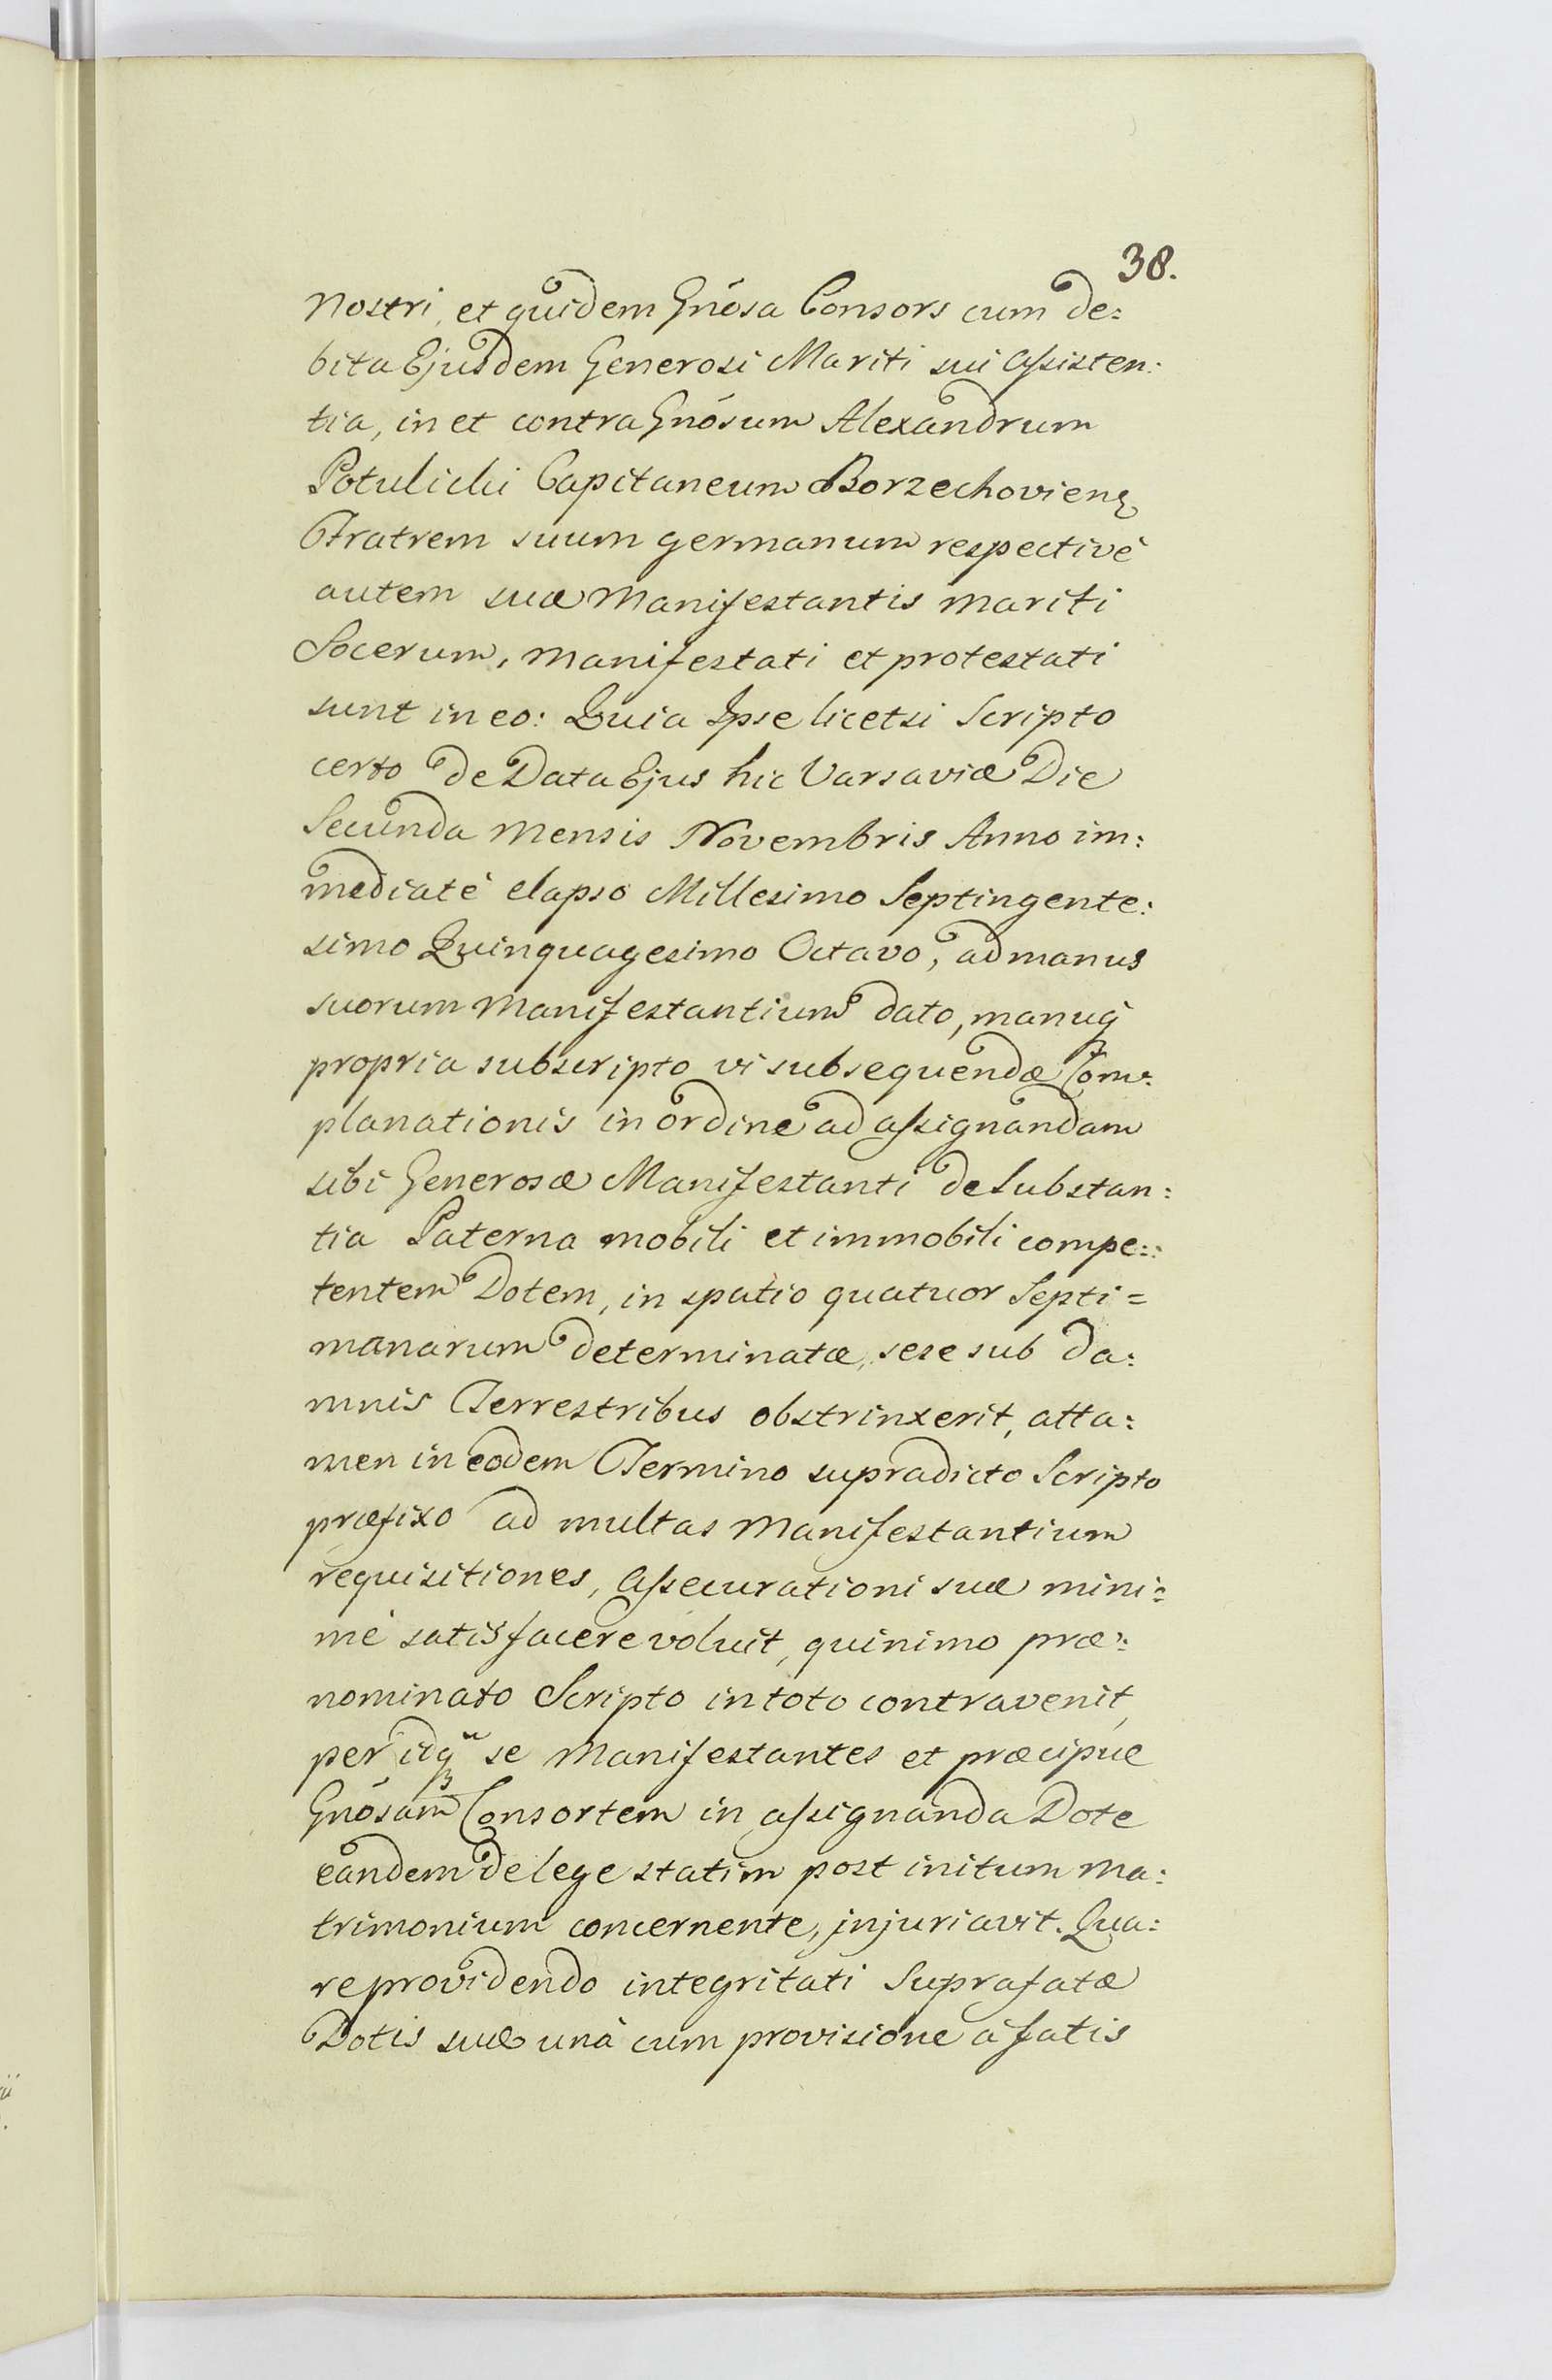 38.
Nostri, et quidem Gnósa Consors cum de:
bita Ejusdem Generosi Mariti sui assisten:
tia, in et contra Gnósum Alexandrum
Potulicki Capitaneum Borzechovieng
Fratrem suum germanum respectivè
autem suæ Manifestantis Mariti
Socerum, Manifestati et protestati
sunt in eo: Quia Ipse licetsi Scripto
certo de Data Ejus hic Varsaviæ Die
Secunda Mensis Novembris Anno im:
mediatè elapso Millesimo Septingente:
simo Quinquagesimo Octavo, ad manus
suorum Manifestantium dato, manuq
propria subscripto vi subsequendæ Com:
planationis in ordine ad assignandam
sibi Generosæ Manifestanti de Substan:
tia Paterna mobili et immobili compe:
tentem Dotem, in spatio quatuor Septi=
manarum determinatæ, sese sub Da:
mnis Terrestribus obstrinxerit, atta:
men in eodem Termino supradicto Scripto
præfixo ad multas Manifestantium
requisitiones, assecurationi suæ mini:
mè satisfacere voluit, quinimo præ:
nominato Scripto in toto contravenit,
per idq se Manifestantes et præcipue
Gnósam Consortem in assignanda Dote
eandem de lege statim post initum Ma:
trimonium concernente, injuriavit. Qua:
re providendo integritati Suprafatæ
Dotis suæ unà cum provisione à fatis